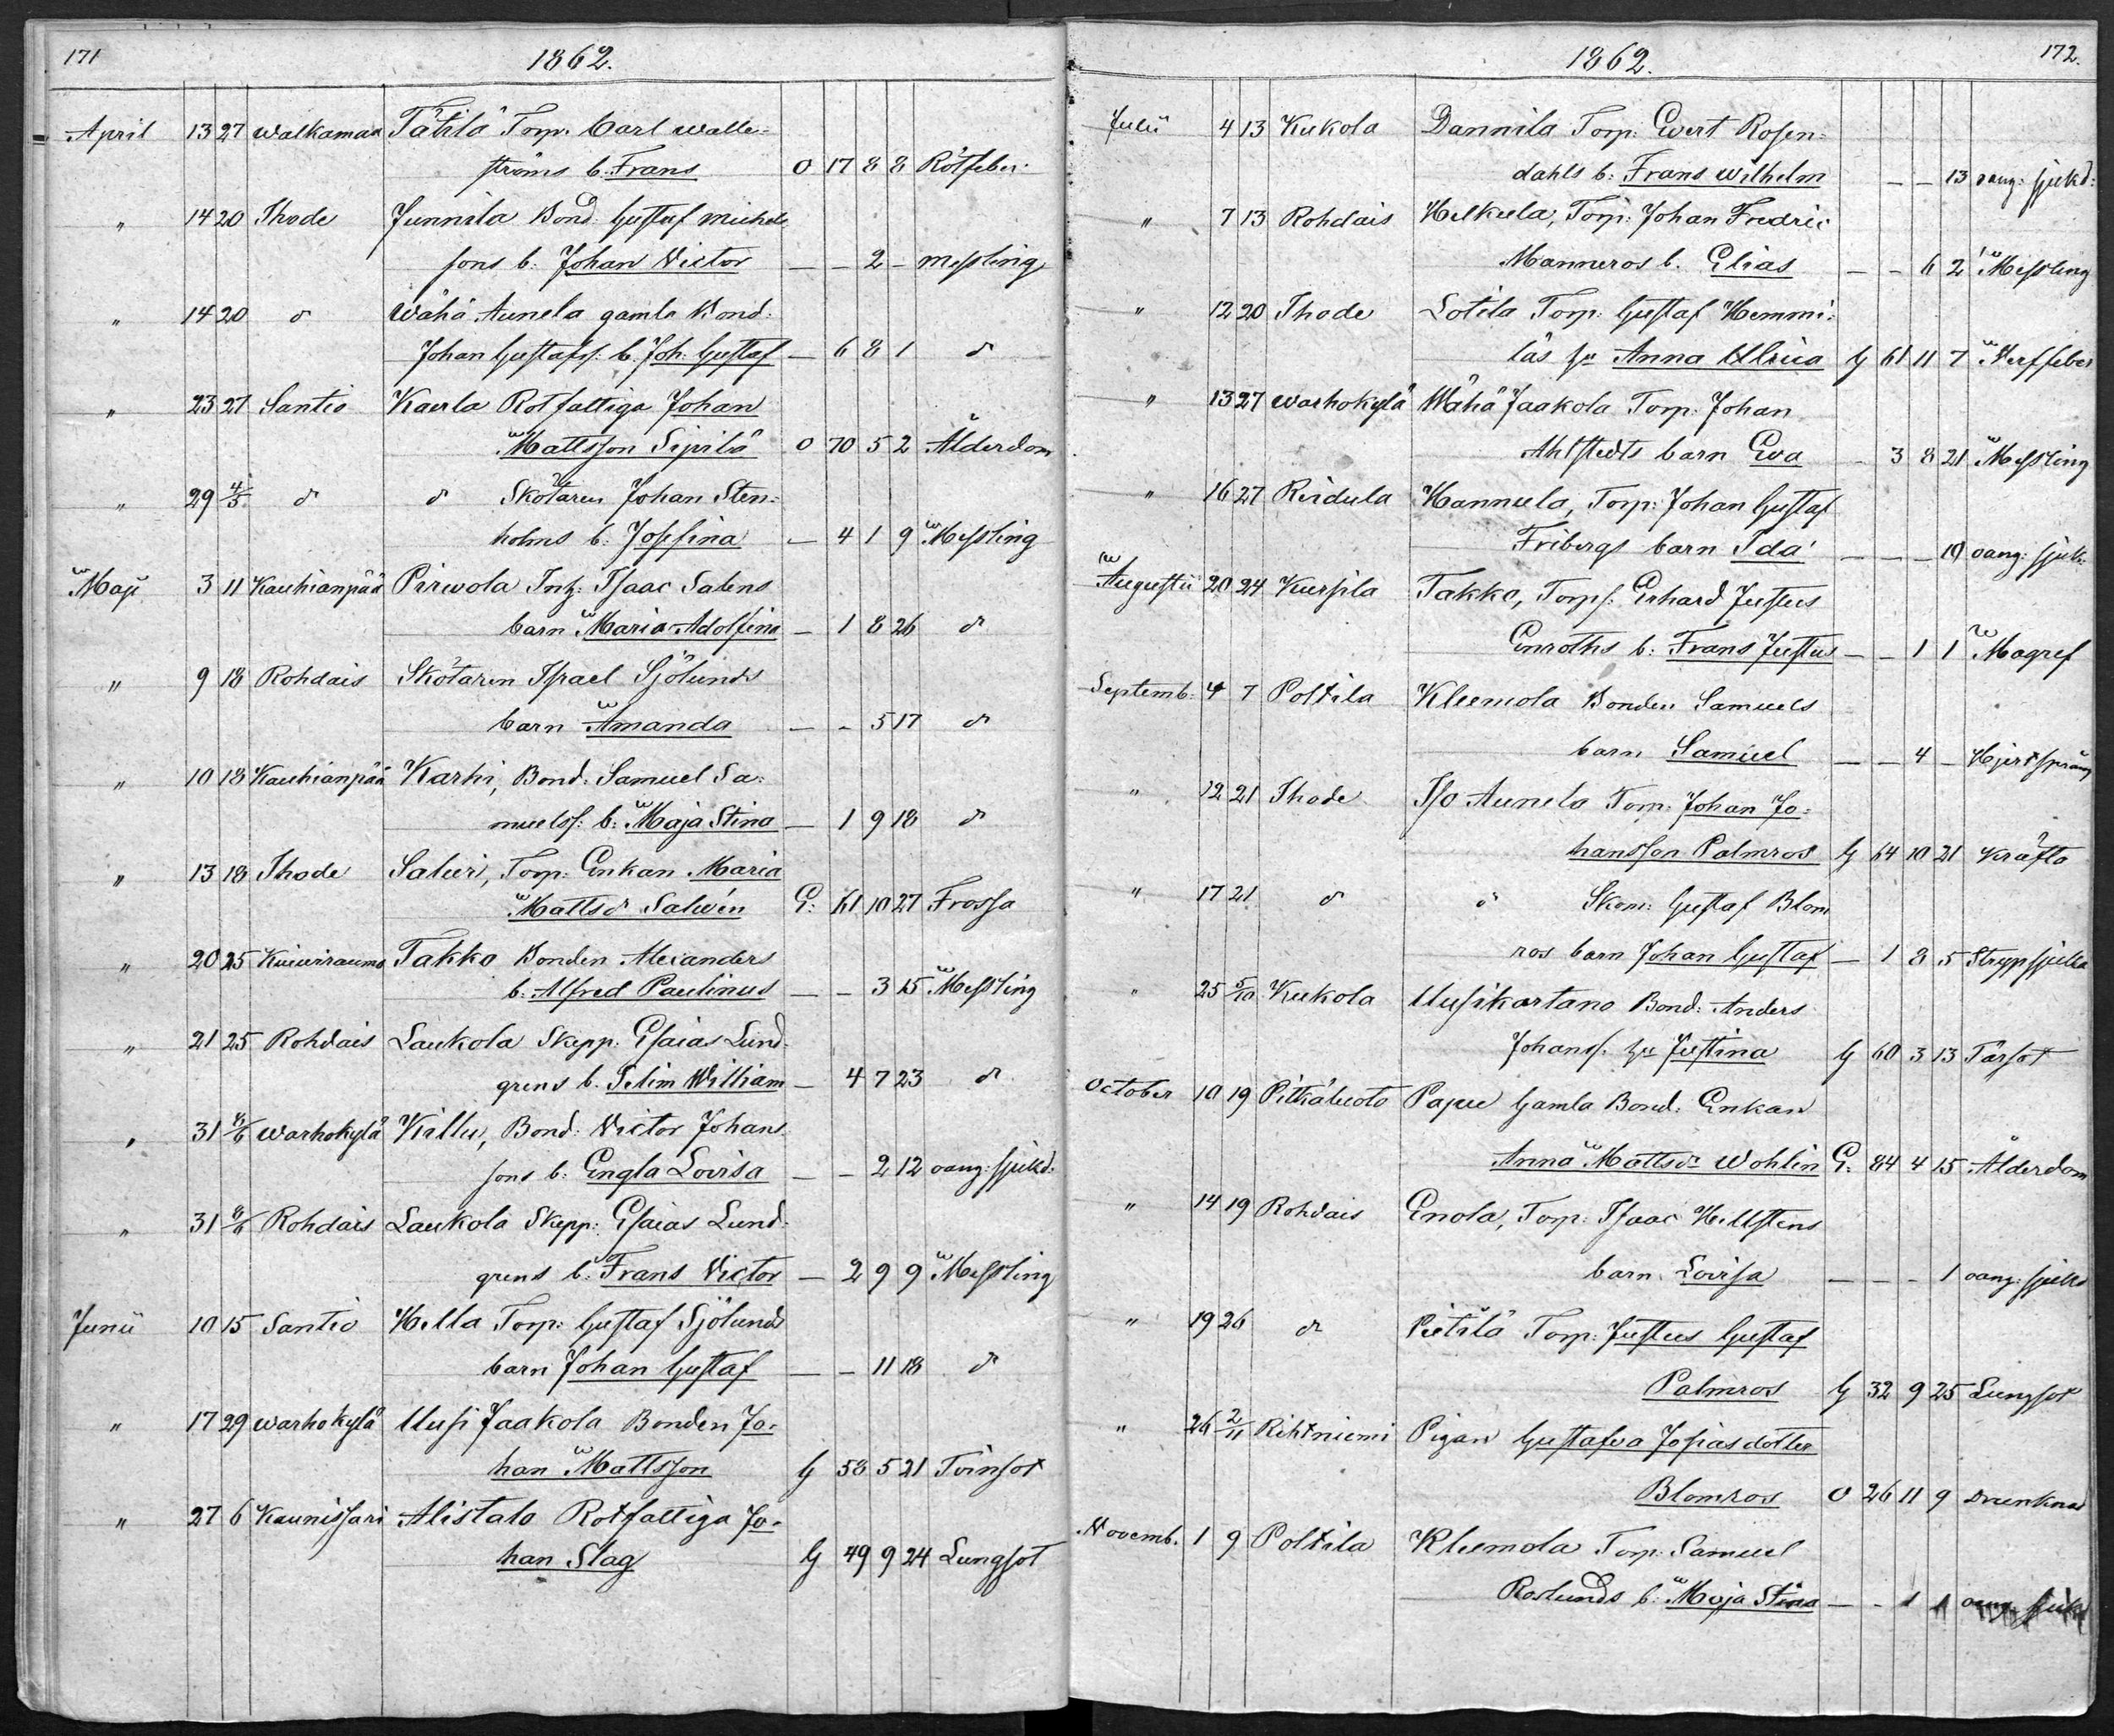 171
1862.
April 13 27 Walkamaa Tätilä Torp. Carl Walle-
ströms b. Frans O 17 8 8 Rötfeber
" 14 20 Ihode Junnila Bond. Gustaf Michels
sons b. Johan Victor — — 2 — messling
" 14 20 d:o Wähä Aunela gamle Bond.
Johan Gustafss: b. Joh: Gustaf — 6 8 1 d:o
" 23 27 Santio Kaerla Rotfattiga Johan
Mattsson Sipilä O 70 5 2 Ålderdom
" 29 4/5 d:o d:o Skötaren Johan Sten-
holms b. Josefina — 4 1 9 Messling
Maji 3 11 Kauhianpää Pirwola Inh: Isaac Salens
barn Maria Adolfina — 1 8 26 d:o
" 9 18 Rohdais Skötaren Israel Sjölunds
barn Amanda — — 5 17 d:o
" 10 18 Kauhianpää Karhi, Bond: Samuel Sa-
muelss: b: Maja Stina — 1 9 18 d:o
" 13 18 Ihode Saluri, Torp: Enkan Maria
Mattsd:r Salwén G: 61 10 27 Frossa
" 20 25 Kuiwiraumo Takko Bonden Alexanders
b. Alfred Paulinus — — 3 15 Messling
" 21 25 Rohdais Laukola Skepp. Esaias Lund-
grens b. Selim William — 4 7 23 d:o
" 31 8/6 Warhokylä Killu, Bond: Victor Johans-
sons b. Engla Lovisa — — 2 12 oang: sjukd:
" 31 8/6 Rohdais Laukola Skepp: Esaias Lund-
grens b: Frans Victor — 2 9 9 Messling
Junii 10 15 Santio Hella Torp: Gustaf Sjölunds
barn Johan Gustaf — — 11 18 d:o
" 17 29 Warhokylä Uusi Jaakola Bonden Jo-
han Mattsson G 58 5 21 Tvinsot
" 27 6 Kaunissari Alistalo Rotfattiga Jo-
han Slag G 49 9 24 Lungsot
1862.
172.
Julii 4 13 Kukola Dannila Torp: Evert Rosen-
dahls b: Frans Wilhelm — — 13 oang: sjukd:
" 7 13 Rohdais Helkula, Torp: Johan Fredric
Manneros b. Elias — — 6 2 Messling
" 12 20 Ihode Sotila Torp: Gustaf Hemmi-
läs hu Anna Ulrica G 61 11 7 Nerffeber
" 13 27 Warhokylä Wähä Jaakola Torp: Johan
Ahlstedts barn Eva — 3 8 21 Messling
" 16 27 Reidula Hannula, Torp: Johan Gustaf
Fribergs barn Ida — — — 10 oang: sjuk:
Augustii 20 24 Kursila Takko, Torps: Erhard Justus
Enroths b: Frans Justus — — 1 1 Magref
Septemb: 4 7 Poltila Kleemola Bonden Samuels
barn Samuel — — 4 — Hjertspräng
" 12 21 Ihode Iso Aunela Torp: Johan Jo-
hansson Palmros G 64 10 21 Kräfta
" 17 21 d:o d:o Skom: Gustaf Blom
ros barn Johan Gustaf — 1 8 5 Strypsjuka
" 25 5/10 Kukola Uusikartano Bond: Anders
Johanss. hu Justina G 60 3 13 Tärsot
October 10 19 Pitkäluoto Papu Gamla Bond: Enkan
Anna Mattsd:r Wohlin G: 84 4 15 Ålderdom
" 14 19 Rohdais Enola, Torp: Isaac Hellstens
barn Lovisa — — — 1 oang: sjukd
" 19 26 d:o Pietilä Torp: Justus Gustaf
Palmros G 32 9 25 Lungsot
" 26 2/11 Rihtniemi Pigan Gustafva Josiasdotter
Blomros O 26 11 9 Drunknad
Novemb. 1 9 Poltila Kleemola Torp: Samuel
Roslunds b: Maja Stina — — 1 1 oang. sjukd